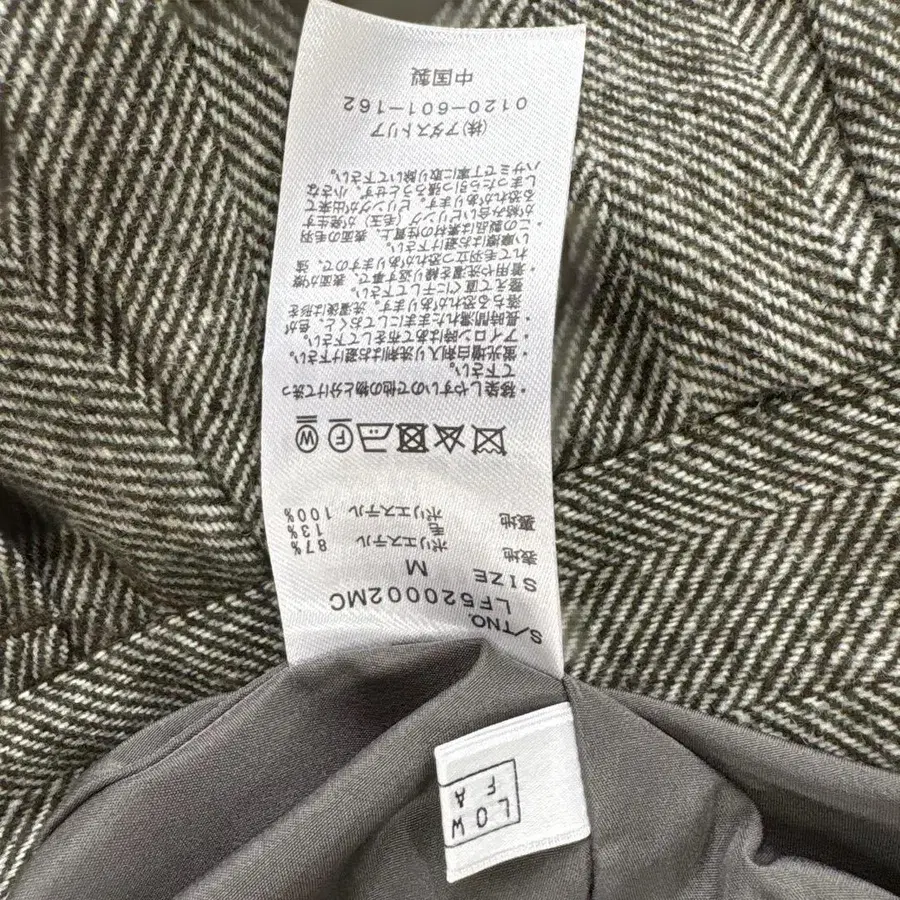 S/TNO.
LF520002MC
SIZE
M
表地 ポリエステル 87%
毛 13%
裏地 ポリエステル 100%
W F
・移染しやすいので他の物と分けて洗っ
て下さい。
・蛍光増白剤入り洗剤はお避け下さい。
・アイロン時はあて布をして下さい。
・長時間濡れたままにしておくと、色が
落ちる恐れがあります。洗濯後は形を
整えて直ぐに干して下さい。
・着用や洗濯を繰り返す事で、表面が擦
れて毛羽立つ恐れがありますので、強
い摩擦はお避け下さい。
・この製品は素材の性質上、表面の毛羽
が絡み合いピリング（毛玉）が発生す
る恐れがあります。ピリングが出来て
しまったら引っ張ろうとせず、小さな
ハサミで丁寧に取り除いて下さい。
(株)アダストリア
0120-601-162
中国製
LOW
FA